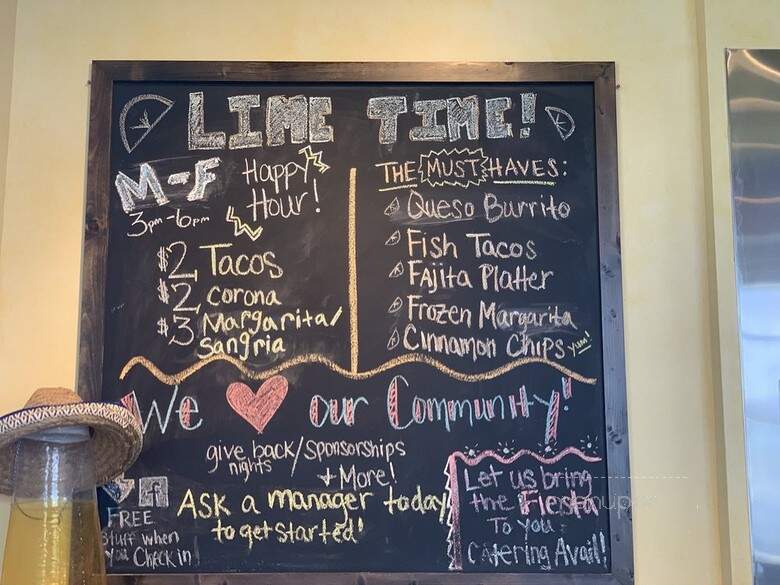 LIME TIME!
M-F Happy Hour!
3pm-6pm
$2 Tacos
$2 Corona
$3 Margarita/
Sangria
THE MUST HAVES:
Queso Burrito
Fish Tacos
FAjita Platter
Frozen Margarita
Cinnamon Chips yum!
We our Community!
give back/Sponsorships
nights
+ More!
Ask a manager today
to get started!
FREE
Stuff when
you Check in
Let us bring
the Fiesta
To you
Catering Avail!